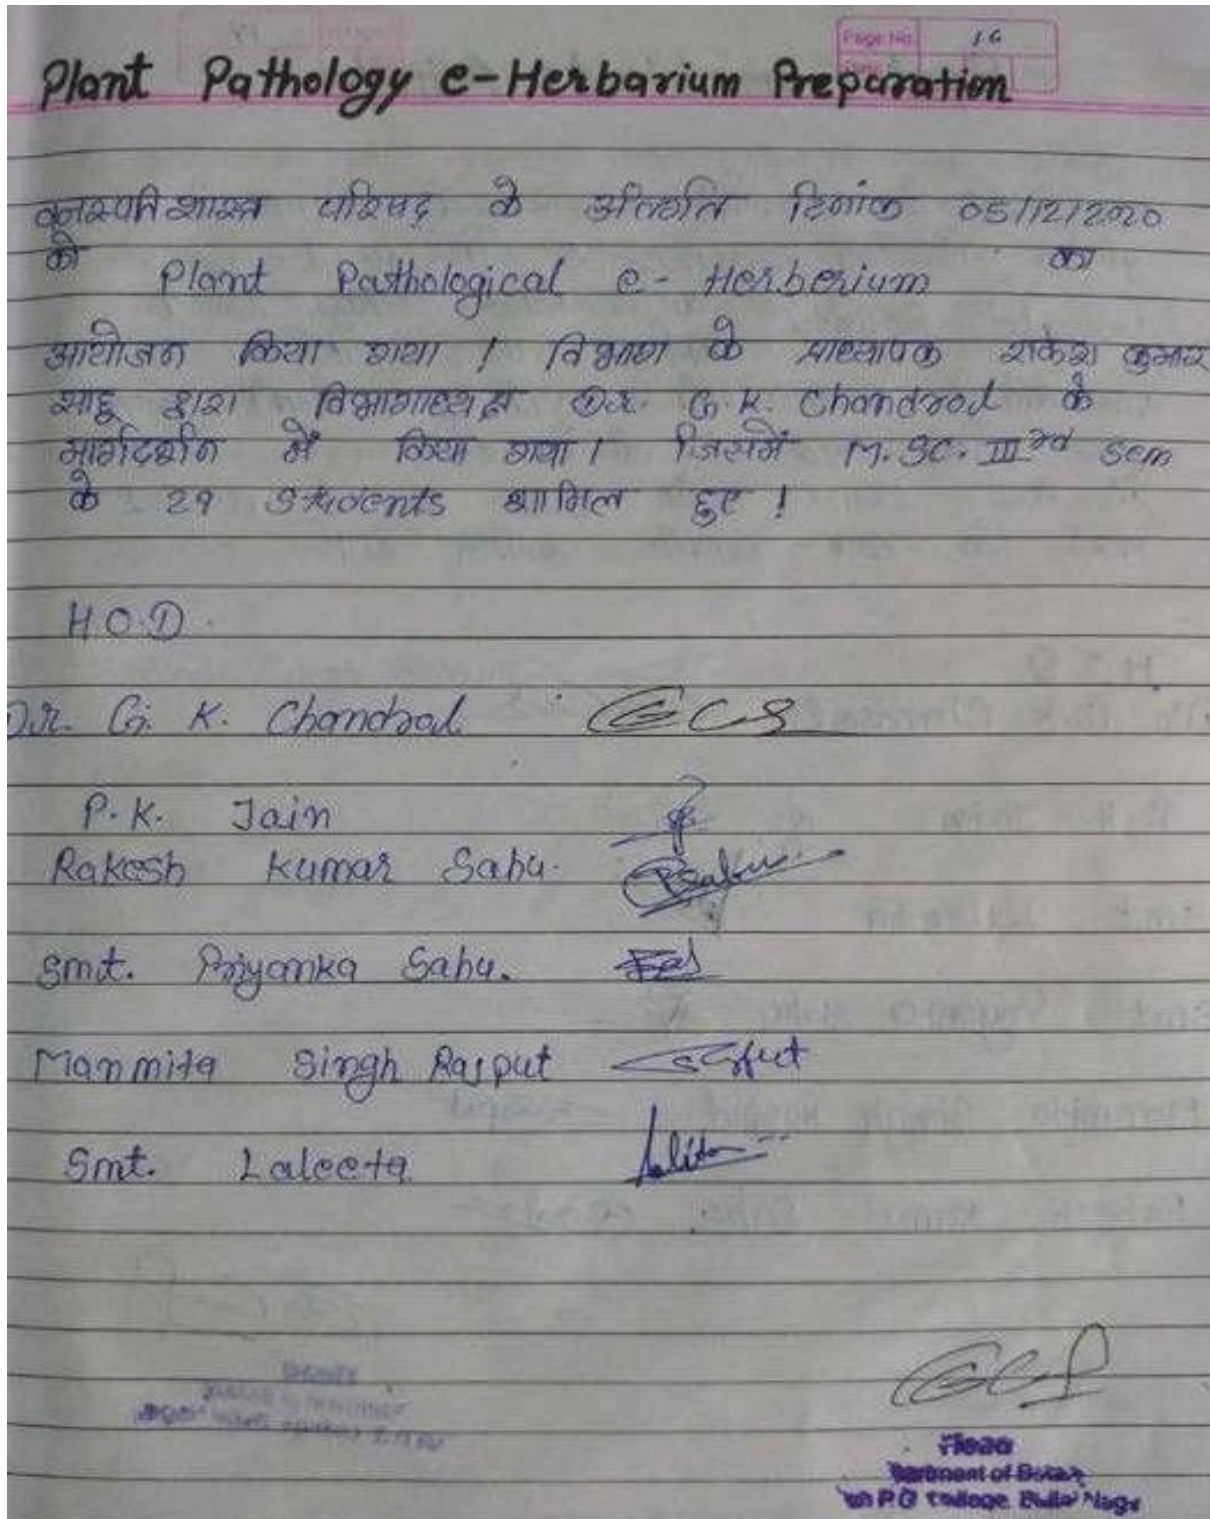 Page No. 16
Plant Pathology e-Herbarium Preparation
वनस्पति शास्त्र परिषद के अंतर्गत दिनांक 05/12/2020
को Plant Pathological e-Herberium का
आयोजन किया गया / विभाग के प्राध्यापक राकेश कुमार
साहू द्वारा विभागाध्यक्ष Dr. G. K. Chandrol के
मार्गदर्शन में किया गया / जिसमें M.SC. III rd Sem
के 29 Students शामिल हुए !
H.O.D.
Dr. G. K. Chandrol
P. K. Jain
Rakesh Kumar Sahu.
Smt. Priyanka Sahu.
Manmita Singh Rajput
Smt. Laleeta Lalita
Head
Department of Botany
P.G College, Bhilai Nagar